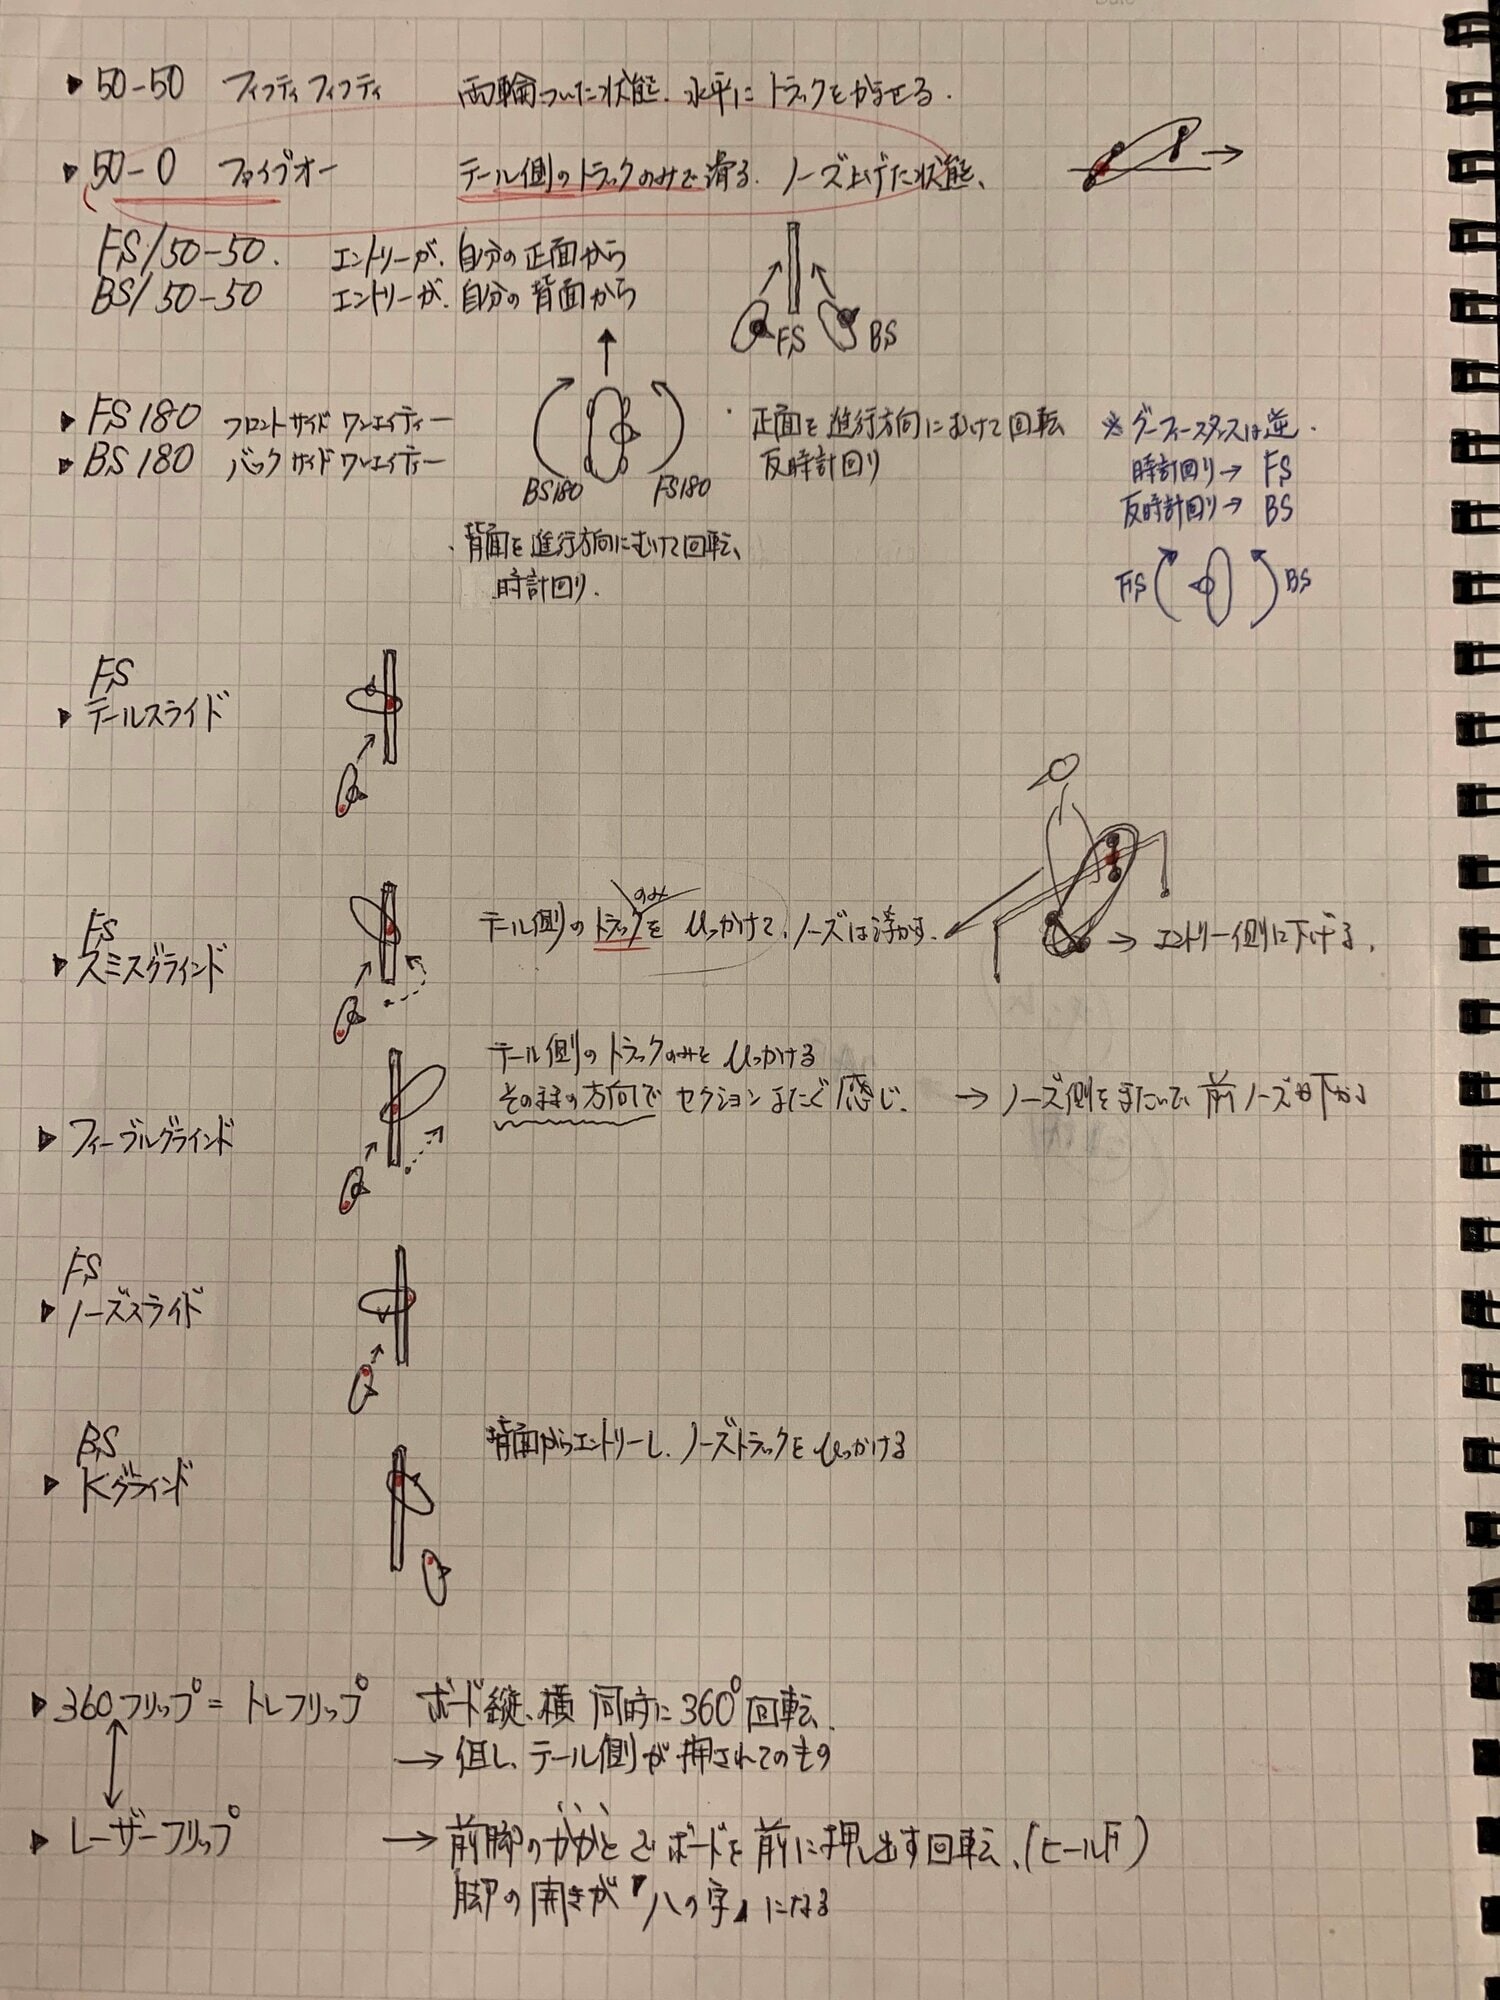 ▶ 50-50 フィフティフィフティ 両輪ついた状態. 水平にトラックをかませる.
▶ 50-0 ファイブオー テール側のトラックのみで滑る. ノーズ上げた状態、
FS/50-50. エントリーが、自分の正面から
BS/50-50 エントリーが、自分の背面から
FS BS
▶ FS180 フロントサイドワンエイティー
▶ BS180 バックサイドワンエイティー
BS180 FS180
・正面を進行方向にむけて回転
反時計回り
※グーフィースタンスは逆.
時計回り→ FS
反時計回り→ BS
FS BS
・背面を進行方向にむけて回転、
時計回り.
FS
▶ テールスライド
FS
▶ スミスグラインド
のみ
テール側のトラックを ひっかけて、ノーズは浮かす.
→ エントリー側に下げる.
▶ フィーブルグラインド
テール側のトラックのみを ひっかける
そのままの方向で セクションまたぐ感じ. → ノーズ側をまたいで、前ノーズ下がる
FS
▶ ノーズスライド
BS
▶ Kグラインド
背面からエントリーし、ノーズトラックをひっかける
▶ 360フリップ = トレフリップ ボード縦、横 同時に360°回転.
→ 但し、テール側が押されてのもの
▶ レーザーフリップ → 前脚のかかとでボードを前に押し出す回転、(ヒール)
脚の開きが『ハの字』になる